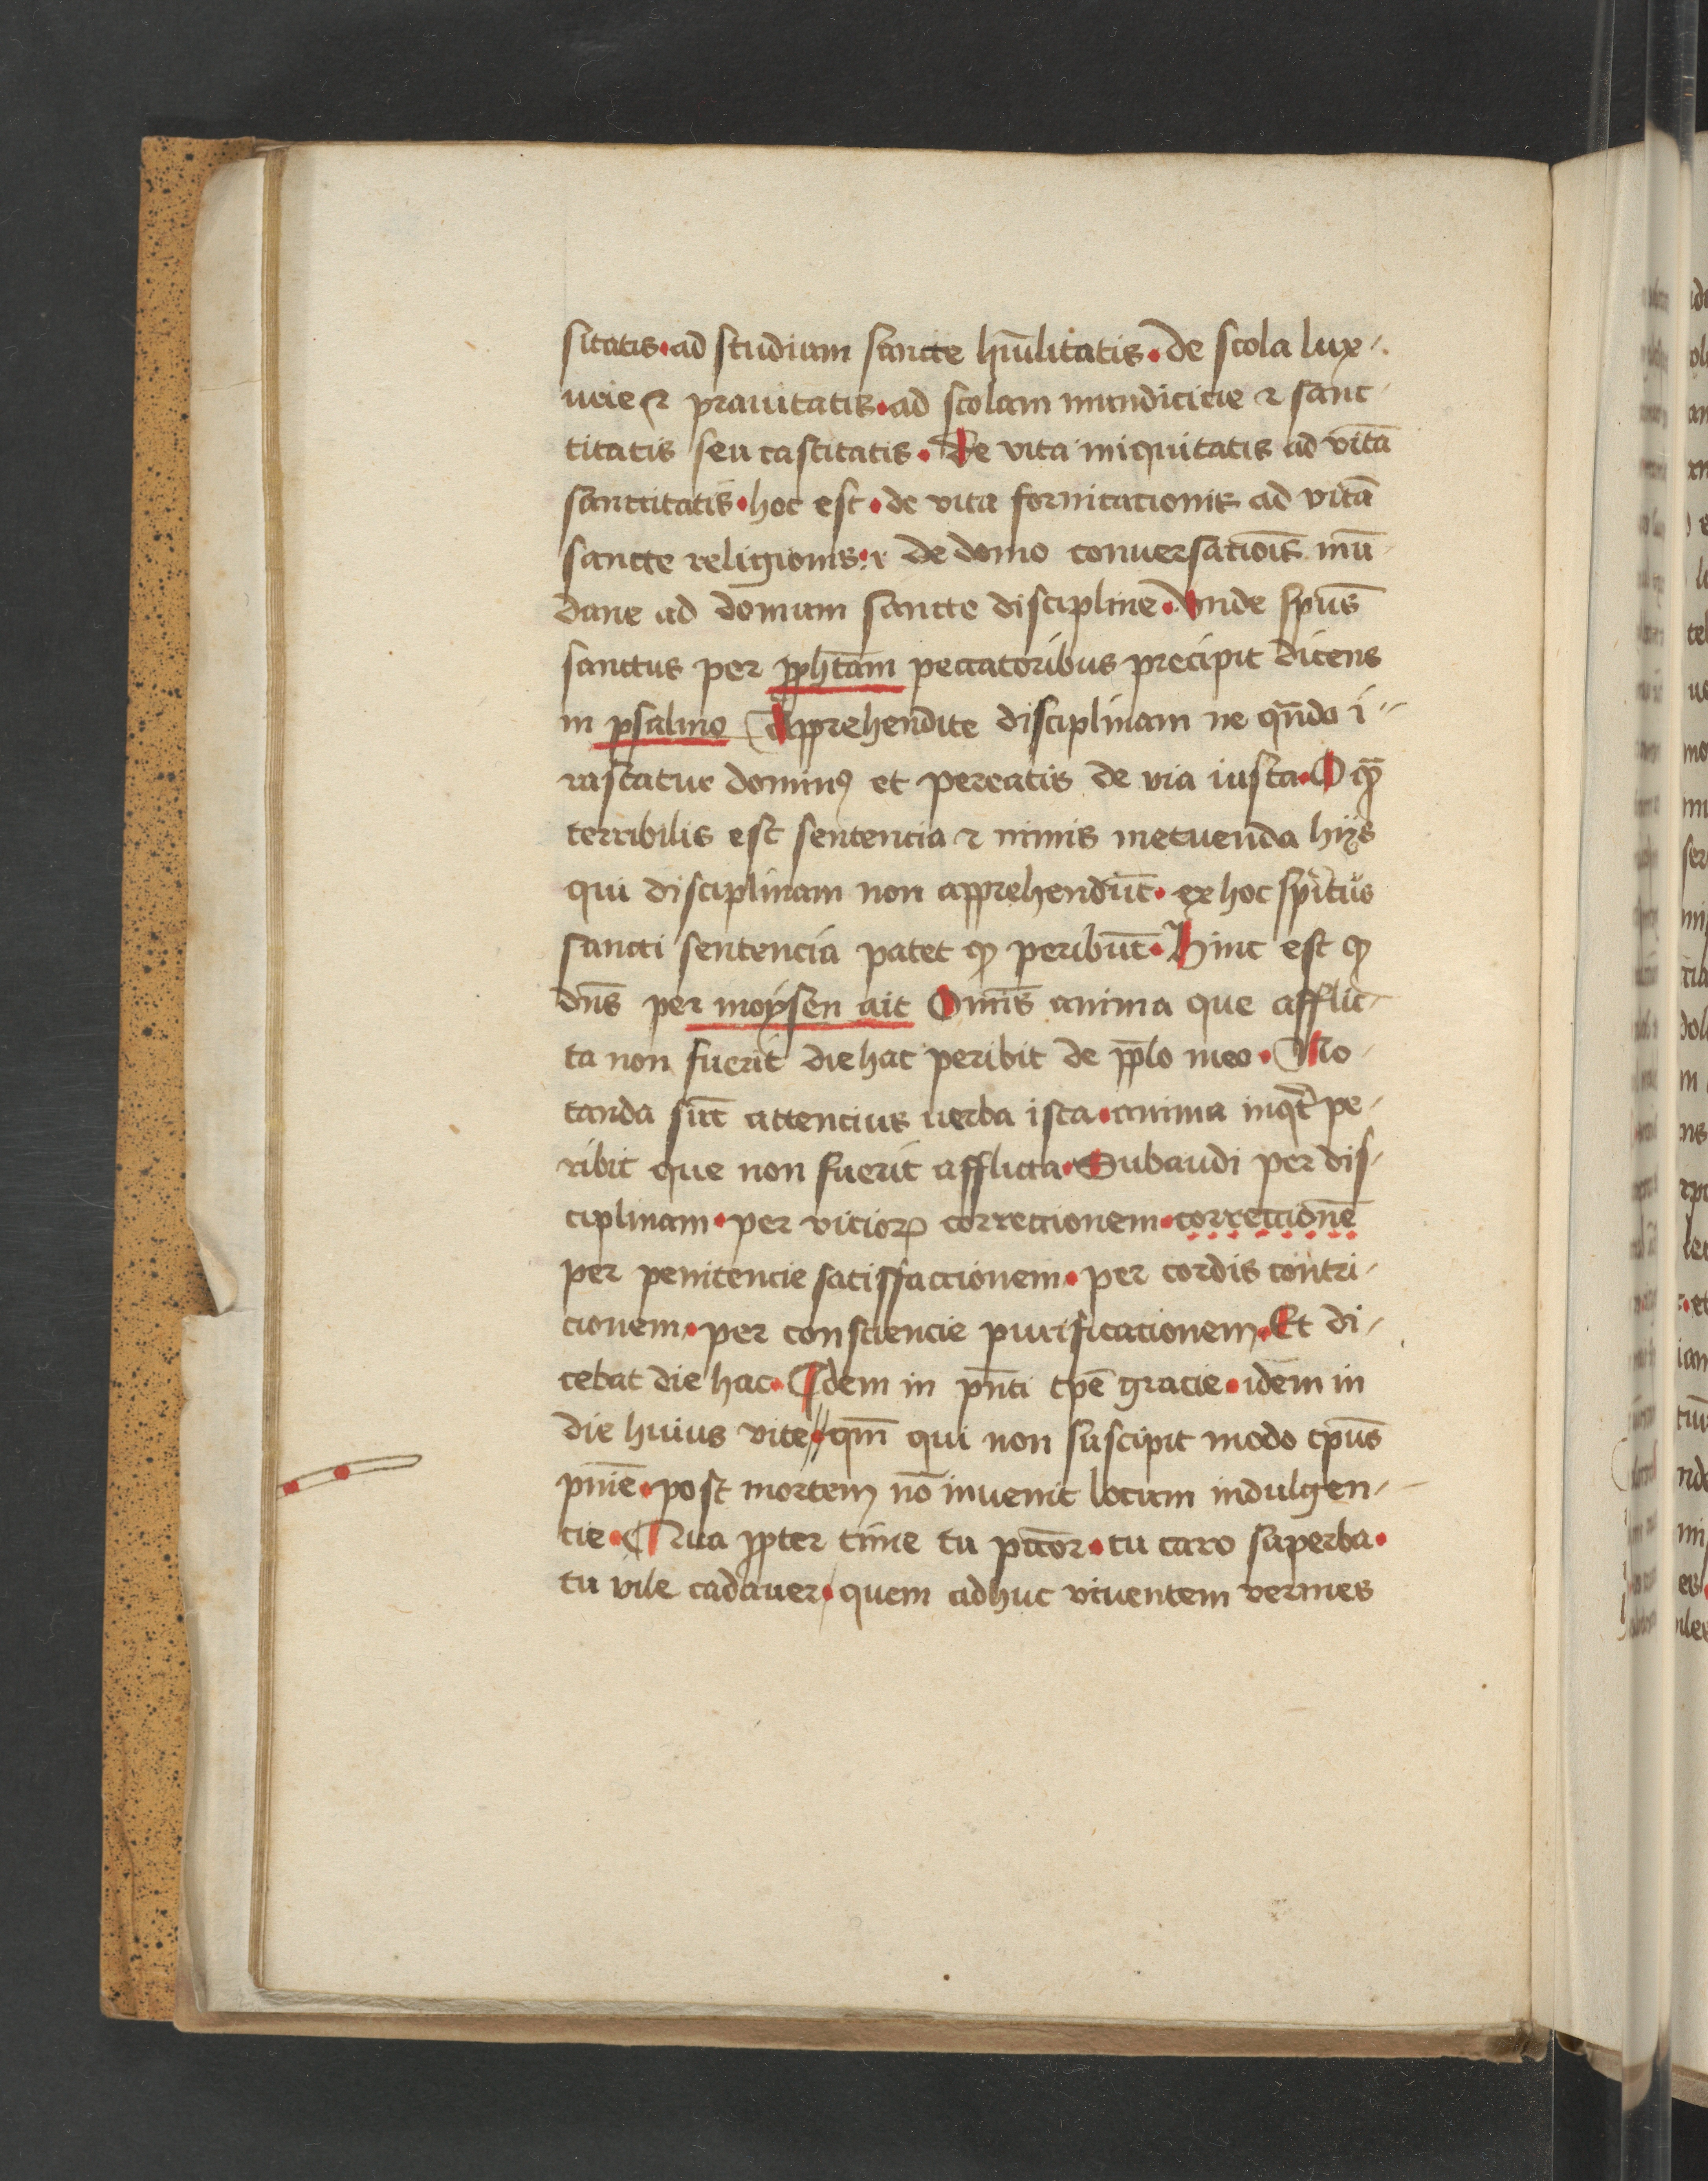 sitatis·ad studium sancte hūīlitatis·de scola lux-
urie ⁊ prauitatis·ad scolam mundicicie ⁊ sanc-
titatis seu castitatis·De vita iniquitatis ad vitā
sanctitatis·hoc est·de vita fornicacionis ad vitā
sancte religionis·⁊ de domo conuersatiōis mū-
dane ad domum sancte discipline·Vnde spūs
sanctus per ꝓphetam peccatoribus precipit dicens
in psalmo Apprehendite disciplinam ne qn̄do i-
rascatur dominꝰ et pereatis de via iusta·O qꝫ̄
terribilis est sentencia ⁊ nimis metuenda hijs
qui disciplinam non apprehendūt·ex hoc spiritus
sancti sentencia patet ꝙ peribūt·Hinc est ꝙ
dn̄s per moysen ait Om̄is anima que afflic-
ta non fuerit die hac peribit de pp̄lo meo·No-
tanda sūt attencius uerba ista·anima inqͥt pe-
ribit que non fuerit afflicta·Subaudi per dis-
ciplinam·per vicioꝝ correctionem·correctionē
per penitencie satisfaccionem·per cordis contri-
cionem·per consciencie purificacionem·Et di-
cebat die hac·Idem in pn̄ti tp̄e gracie·idem in
die huius vite·qm̄ qui non suscipit modo tp̄us
pn̄ie·post mortem nō inuenit locum indulgen-
cie·Qua ꝓpter time tu pc̄cor·tu caro superba·
tu vile cadauer·quem adhuc viuentem vermes